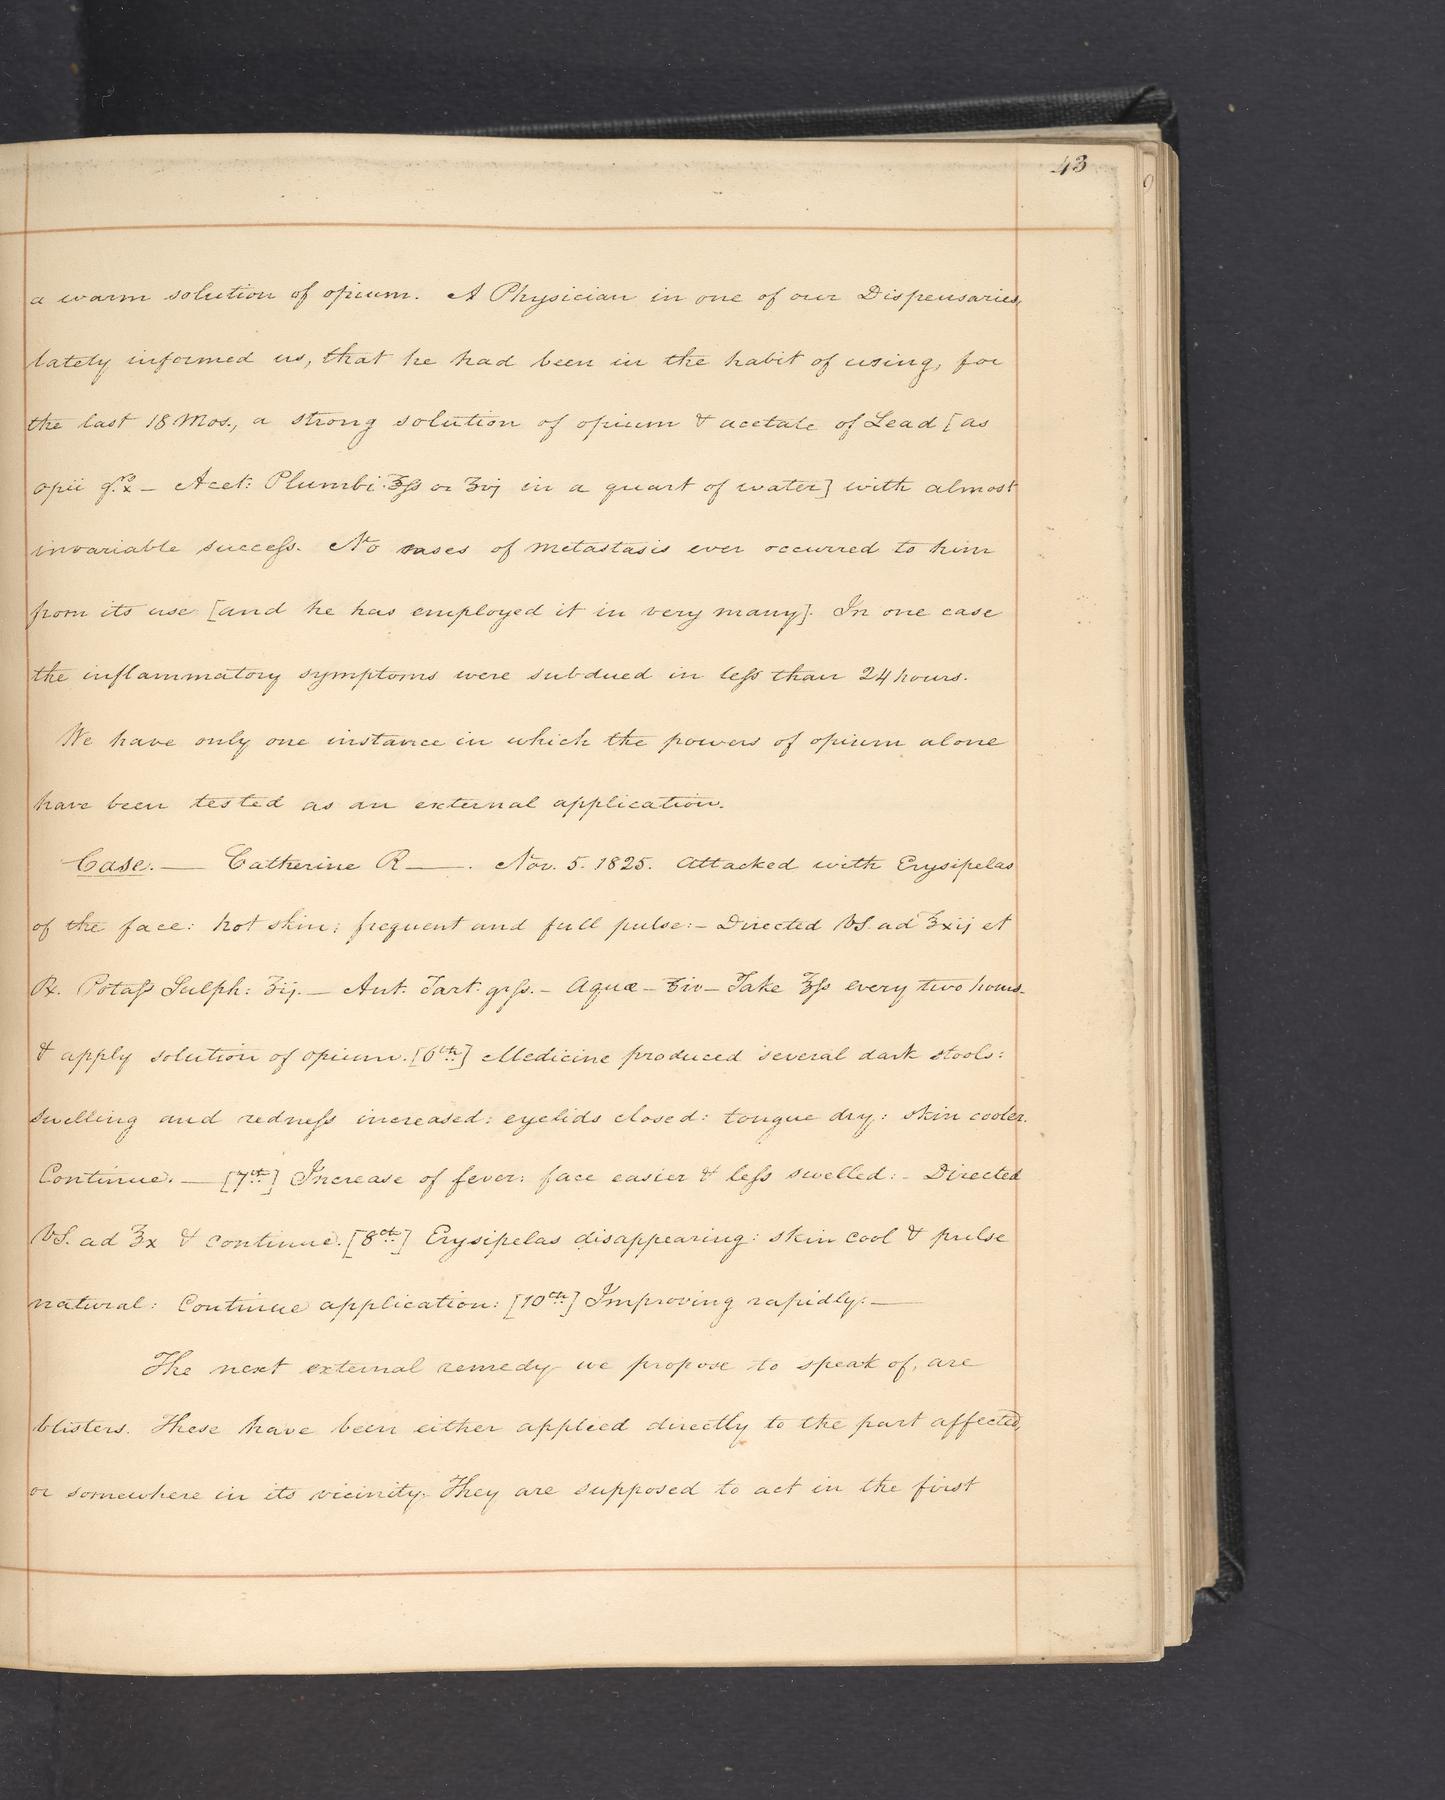 43
a warm solution of opium. A Physician in one of our Dispensaries,
lately informed us, that he had been in the habit of using, for
the last 18 Mos., a strong solution of opium & acetate of Lead [as
opii grs. x — Acet: Plumbi ℥ss or ʒvj in a quart of water] with almost
invariable success. No cases of metastasis ever occurred to him
from its use [and he has employed it in very many]. In one case
the inflammatory symptoms were subdued in less than 24 hours.
We have only one instance in which the powers of opium alone
have been tested as an external application.
Case. — Catherine R—. Nov. 5. 1825. Attacked with Erysipelas
of the face: hot skin; frequent and full pulse:— Directed VS. ad ℥xij et
℞. Potass Sulph: ʒij. — Ant. Tart. grss. — Aquæ — ℥iv — Take ℥ss every two hours—
& apply solution of opium. [6th] Medicine produced several dark stools:
swelling and redness increased: eyelids closed: tongue dry: skin cooler.
Continue. — [7th] Increase of fever: face easier & less swelled:— Directed
VS. ad ℥x & continue. [8th] Erysipelas disappearing: skin cool & pulse
natural: Continue application: [10th] Improving rapidly.—
The next external remedy we propose to speak of, are
blisters. These have been either applied directly to the part affected,
or somewhere in its vicinity. They are supposed to act in the first